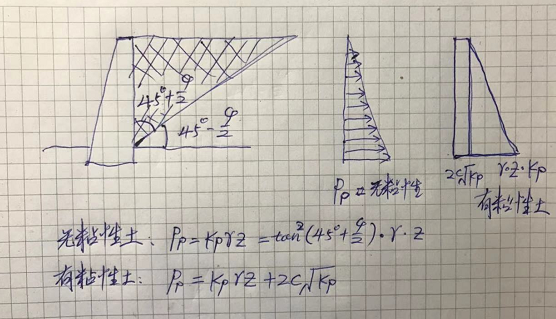 45°+φ/2
45°-φ/2
Pp 无粘性
2c√Kp γ·z·Kp
有粘性土
无粘性土: Pp = Kpγz = tan²(45°+φ/2)·γ·z
有粘性土: Pp = Kpγz + 2c√Kp